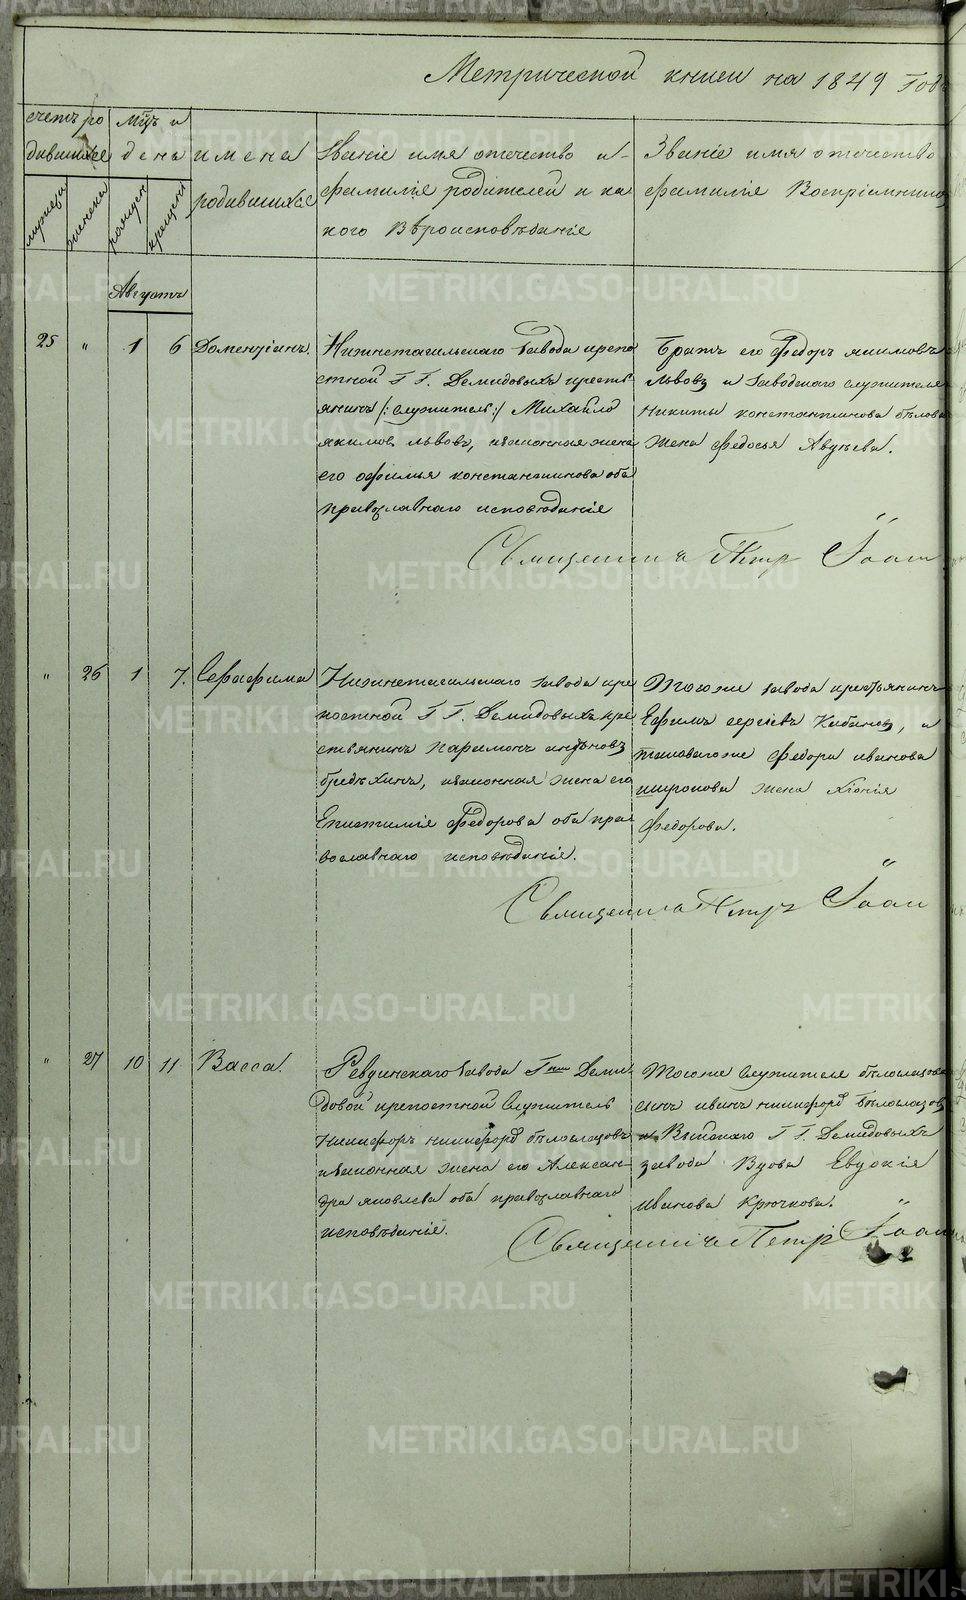 Метрической книги на 1849 Годъ
счетъ ро
дившихся
мужеска
женска
Мц̃ъ и
день
рожден
крещен
имена
родившихся
Званіе имя отечество и
фамиліе родителей и ка
кого Вѣроисповѣданіе
Званіе имя отечество
фамиліе Воспріемник
Августъ
25 " 1 6 Доментіанъ.
Нижнетагильскаго Завода крепо
стной Г.Г. Демидовыхъ кресть
янинъ /: служитель :/ Михайло
якимов львовъ, и законная жена
его офимья константинова оба
православнаго исповѣданія
Братъ его Федоръ якимовъ
львовъ и Заводскаго служителя
Никиты константинова бѣлова
жена Федосья Авдѣева.
Священникъ Петр Іоан
" 26 1 7. Серафима
Нижнетагильскаго завода кре
постной Г.Г. Демидовыхъ кре
стьянинъ Парамонъ
бредихинъ, и законная жена его
Епистимія Федорова оба пра
вославнаго исповѣданія.
Тогоже завода крестьянинъ
Ефимъ сергіевъ и
таковагоже Федора иванова
широкова жена Хіонія
Федорова.
Священника Петръ Іоан
" 27 10 11 Васса.
Ревдинскаго Завода Гжи Деми
довой крепостной Служитель
Никифоръ никифоровъ бѣлоглазовъ
и законная жена его Алексан
дра яковлева оба православнаго
исповѣданія.
Тогоже служителя бѣлоглазова
сынъ иванъ никифоровъ бѣлоглазовъ
и Выйскаго Г.Г. Демидовыхъ
завода Вдова Евдокія
Иванова Крючкова.
Священникъ Петръ Іоан
METRIKI.GASO-URAL.RU